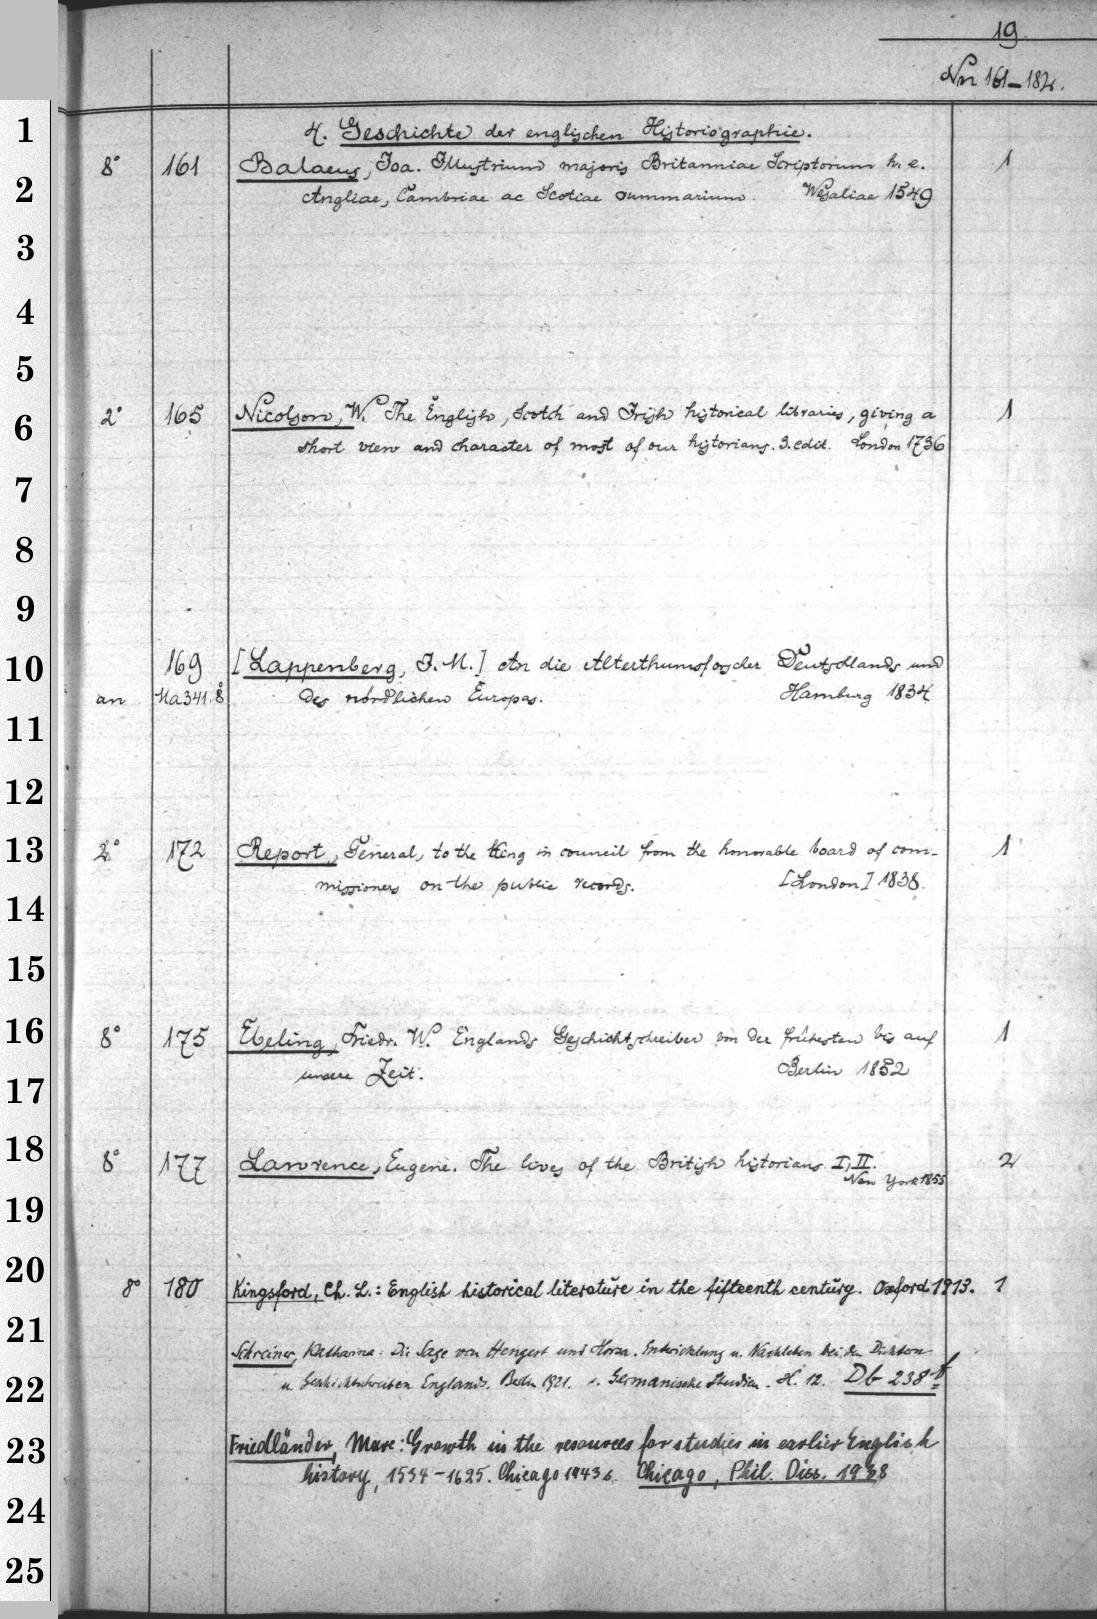 19.
Nn 161-182.
4. Geschichte der englischen Historiographie.
8° 161 Balaeus, Joa. Illustrium majoris Britanniae Scriptorum h. e. 1
Angliae, Cambriae ac Scotiae summarium. Wesaliae 1549
2° 165 Nicolson, W. The English, Scotch and Irish historical libraries, giving a 1
short view and character of most of our historians. 3. edit. London 1736
169 [Lappenberg, J. M.] An die Alterthumsforscher Deutschlands und
an Na 341. 8° des nördlichen Europas. Hamburg 1834
2° 172 Report, General, to the King in council from the honorable board of com- 1
missioners on the public records. [London] 1838.
8° 175 Ebeling, Friedr. W. Englands Geschichtschreiber von der frühesten bis auf 1
unsere Zeit. Berlin 1852
8° 177 Lawrence, Eugene. The lives of the British historians. I, II. 2
New York 1855
8° 180 Kingsford, Ch. L.: English historical literature in the fifteenth century. Oxford 1913. 1
Schreiner, Katharina: Die Sage von Hengest und Horsa. Entwicklung u. Nachleben bei den Dichtern
u. Geschichtschreibern Englands. Berlin 1921. = Germanische Studien. H. 12. Db 238
Friedländer, Marc: Growth in the resources for studies in earlier English
history, 1534-1625. Chicago 1943. Chicago, Phil. Diss. 1938
1
2
3
4
5
6
7
8
9
10
11
12
13
14
15
16
17
18
19
20
21
22
23
24
25